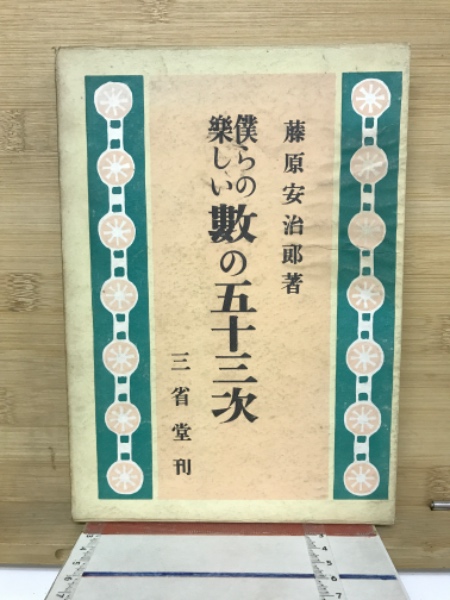 藤原安治郎著
僕らの
樂しい
數の五十三次
三省堂刊